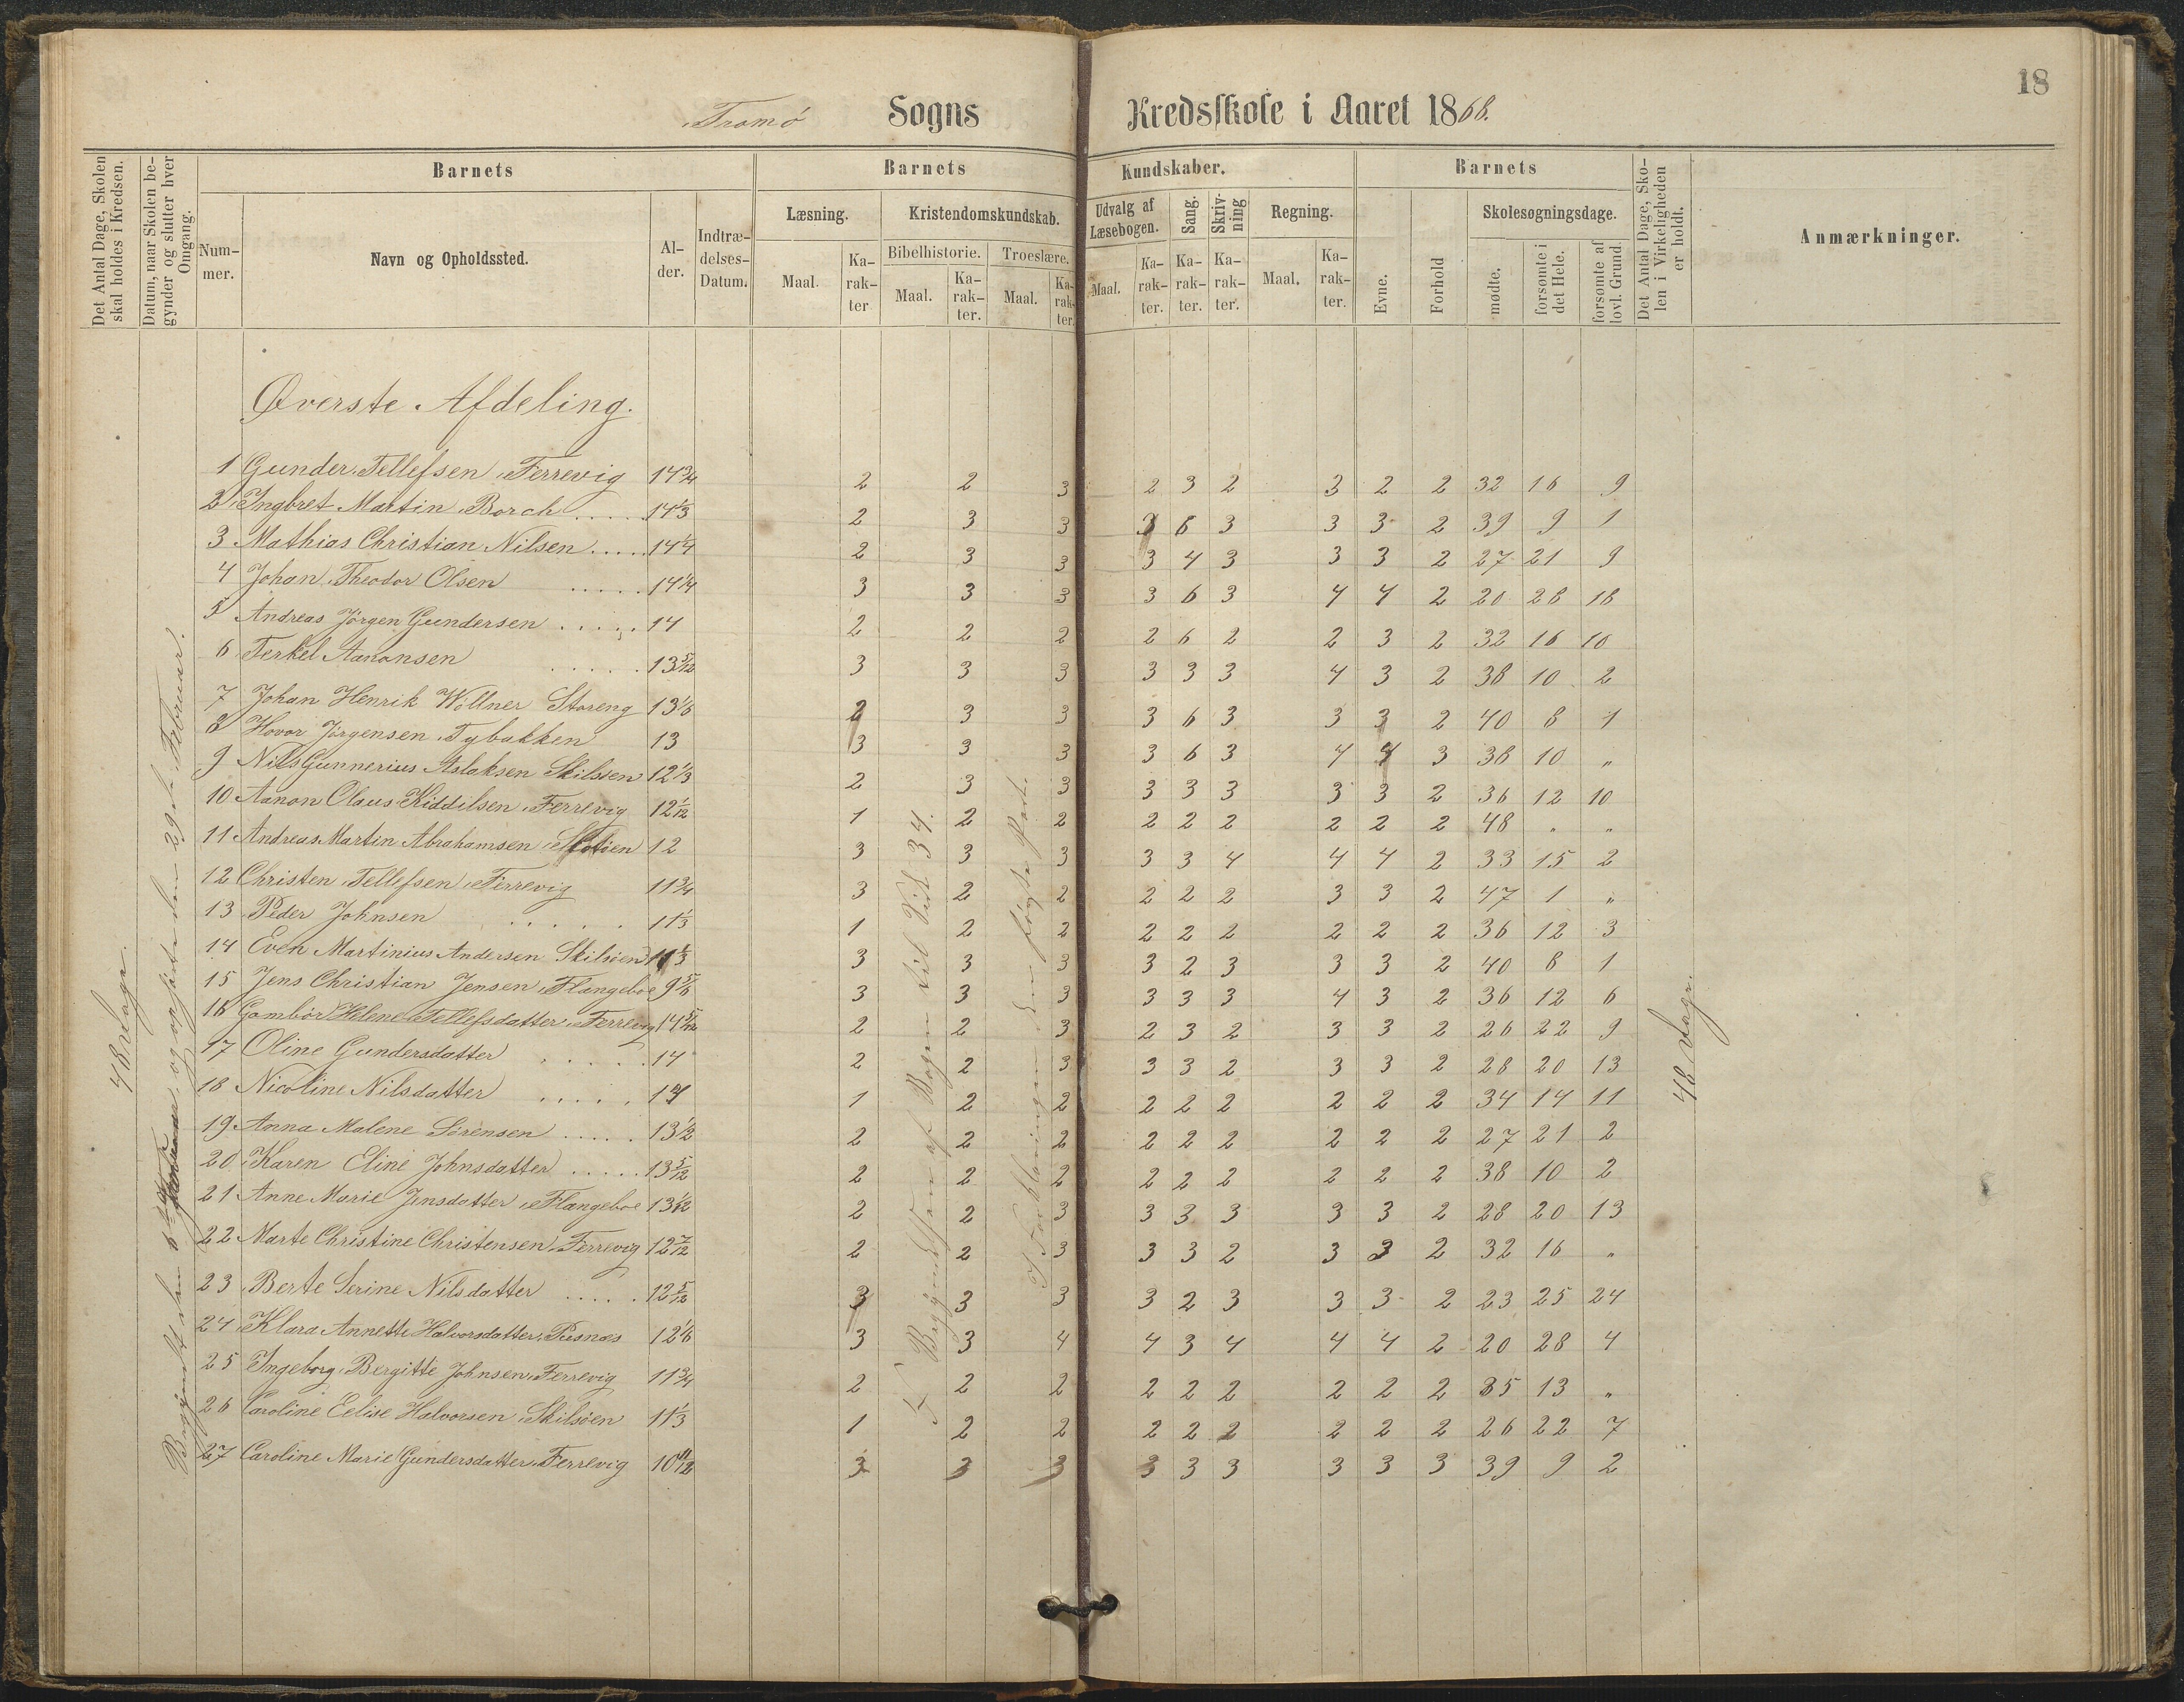 18
Tromö Sogns Kredsskole i Aaret 1868.
Det Antal Dage, Skolen skal holdes i Kredsen.
Datum, naar Skolen begynder og slutter hver Omgang.
Barnets
Nummer.
Navn og Opholdssted.
Alder.
Indtrædelses-Datum.
Barnets Kundskaber.
Læsning.
Maal.
Karakter
Kristendomskundskab.
Bibelhistorie.
Maal.
Karakter.
Troeslære.
Maal.
Karakter.
Udvalg af Læsebogen.
Maal.
Karakter.
Sang.
Karakter.
Skrivning
Karakter.
Regning.
Maal.
Karakter.
Barnets
Evne.
Forhold
Skolesøgningsdage.
mødte.
forsømte i det Hele.
forsømte af lovl. Grund.
Det Antal Dage, Skolen i Virkeligheden er holdt.
Anmærkninger.
Øverste Afdeling.
1 Gunder Tellefsen Færrevig 14 3/4 2 2 3 2 3 2 3 2 2 32 16 9
2 Ingbret Martin Borch ..... 14 1/3 2 3 3 3 6 3 3 3 2 39 9 1
3 Mathias Christian Nilsen ..... 14 1/4 2 3 3 3 4 3 3 3 2 27 21 9
4 Johan Theodor Olsen ..... 14 1/4 3 3 3 3 6 3 4 4 2 20 28 18
5 Andreas Jörgen Gundersen ..... 14 2 2 2 2 6 2 2 3 2 32 16 10
6 Terkel Aanonsen ..... 13 5/12 3 3 3 3 3 3 4 3 2 38 10 2
7 Johan Henrik Wöllner Storeng 13 1/6 2 3 3 3 6 3 3 3 2 40 8 1
8 Hovor Jörgensen Tybakken 13 3 3 3 3 6 3 4 4 3 38 10 "
9 Nils Gunnerius Aslaksen Skilsöen 12 1/3 2 3 3 3 3 3 3 3 2 36 12 10
10 Aanon Olaus Kiddilsen Færrevig 12 1/12 1 2 2 2 2 2 2 2 2 48 " "
11 Andreas Martin Abrahamsen 12 3 3 3 3 3 4 4 4 2 33 15 2
12 Christen Tellefsen Færrevig 11 3/4 3 2 2 2 2 2 3 3 2 47 1 "
13 Peder Johnsen ..... 11 1/3 1 2 2 2 2 2 2 2 2 36 12 3
14 Even Martinius Andersen Skilsöen 3 3 3 3 2 3 3 3 2 40 8 1
15 Jens Christian Jensen Flangeboe 9 5/6 3 3 3 3 3 3 4 3 2 36 12 6
16 Gambör Helene Tellefsdatter Færrevig 14 5/12 2 2 3 2 3 2 3 3 2 26 22 9
17 Oline Gundersdatter ..... 14 2 2 3 3 3 2 3 3 2 28 20 13
18 Nicoline Nilsdatter ..... 14 1 2 2 2 2 2 2 2 2 34 14 11
19 Anna Malene Sörensen ..... 13 1/2 2 2 2 2 2 2 2 2 2 27 21 2
20 Karen Eline Johnsdatter ..... 13 5/12 2 2 2 2 2 2 2 2 2 38 10 2
21 Anne Marie Jensdatter Flangeboe 13 1/12 2 2 3 3 3 3 3 3 2 28 20 13
22 Marte Christine Christensen Færrevig 12 7/12 2 2 3 3 3 2 3 3 2 32 16 "
23 Berte Serine Nilsdatter ..... 12 5/12 3 3 3 3 2 3 3 3 2 23 25 24
24 Klara Annette Halvorsdatter Pusnæs 12 1/6 3 3 4 4 3 4 4 4 2 20 28 4
25 Ingeborg Bergitte Johnsen Færrevig 11 3/4 2 2 2 2 2 2 2 2 2 35 13 "
26 Caroline Eelise Halvorsen Skilsöen 11 1/3 1 2 2 2 2 2 2 2 2 26 22 7
27 Caroline Marie Gundersdatter Færrevig 10 11/12 3 3 3 3 3 3 3 3 3 39 9 2
48 Dage.
Begyndt den 6te og ophörte den 29de Februar.
Fr Begyndelsen af Bogen til Side 34.
I Forklaringen Den förste Part.
48 Dage.